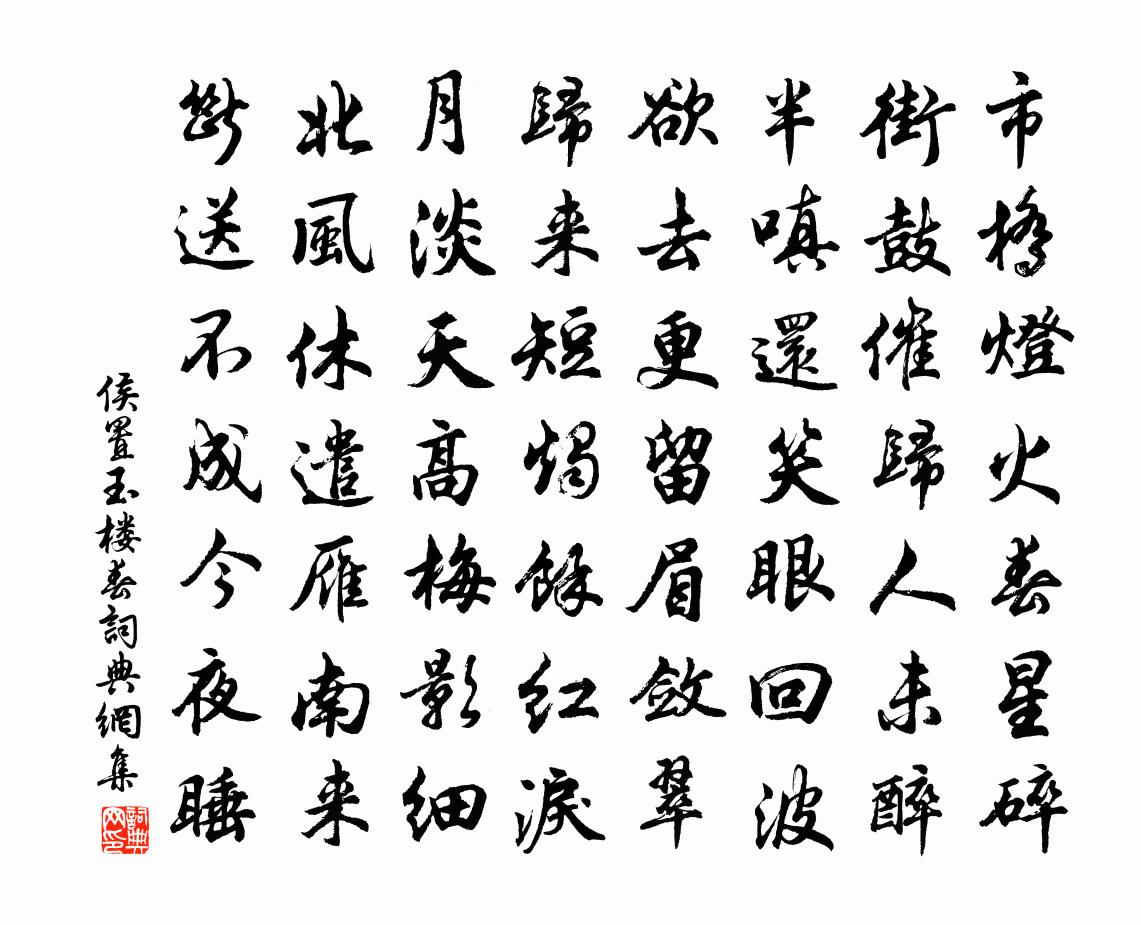 市橋燈火春星碎
街鼓催歸人未醉
半嗔還笑眼回波
欲去更留眉斂翠
歸来短燭餘紅淚
月淡天高梅影細
北風休遣雁南来
斷送不成今夜睡
侯置玉楼春詞典網集
詞典網印